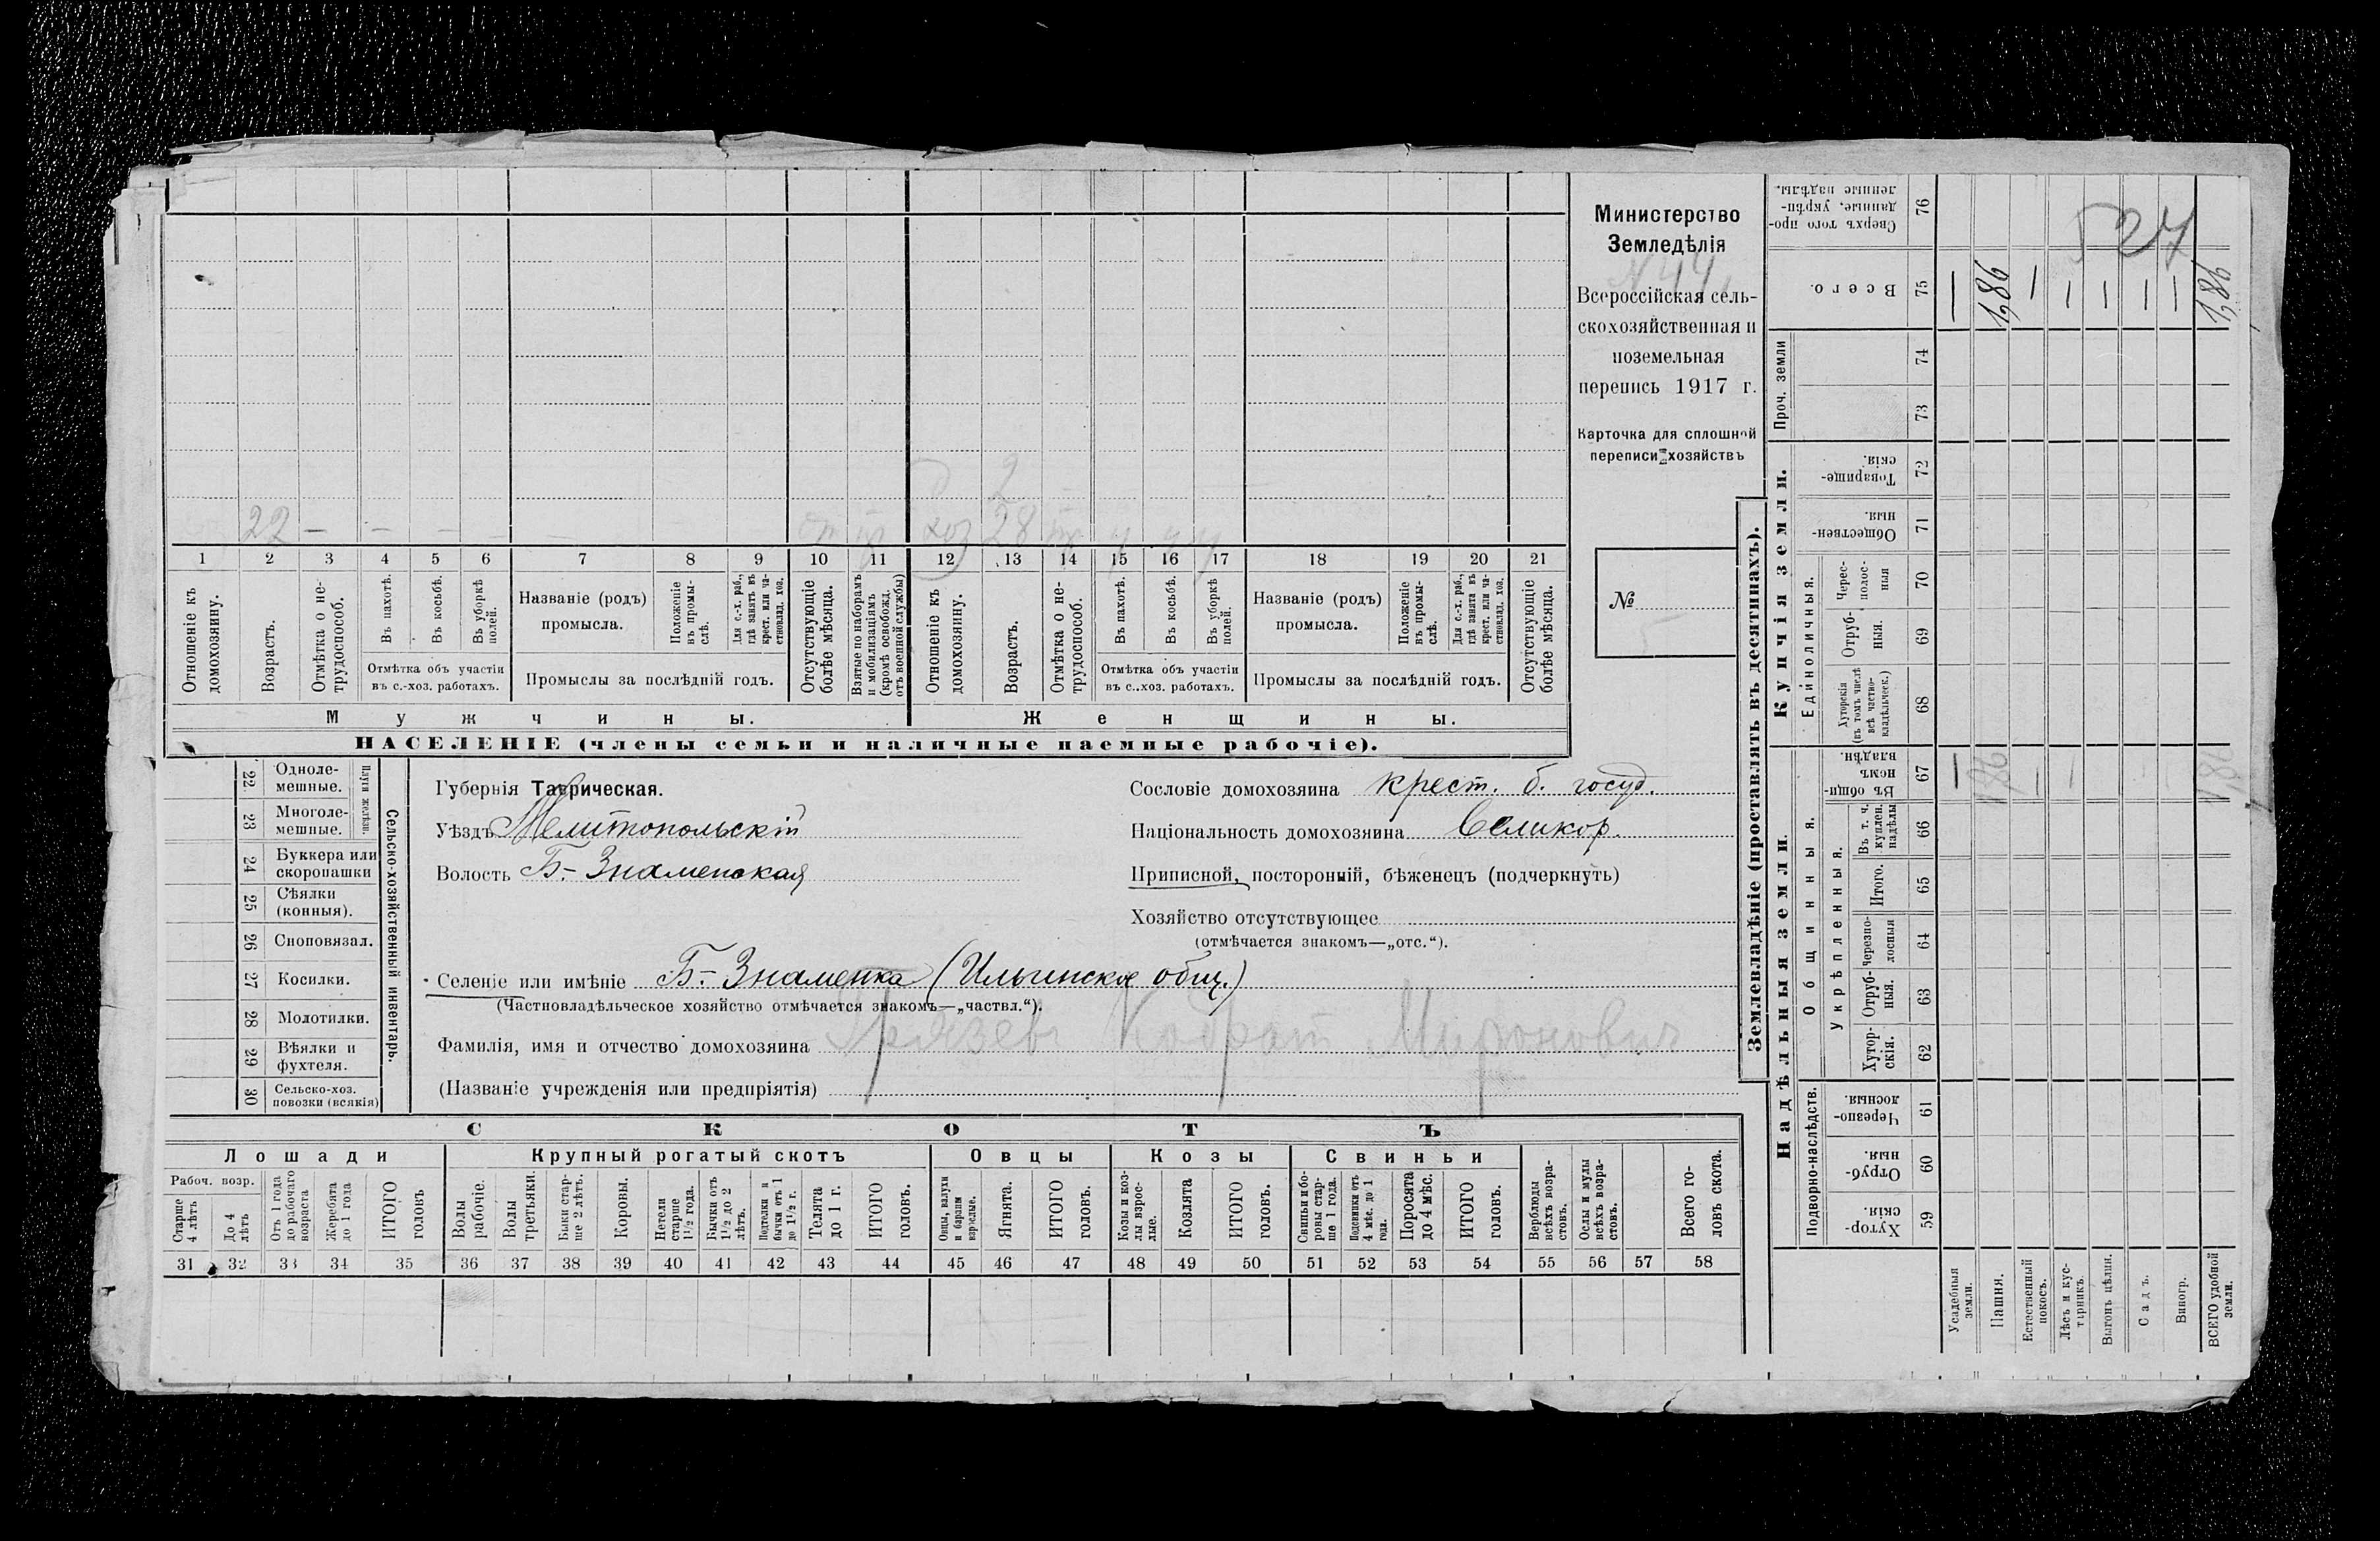 Министерство
Земледѣлія
N 44
Всероссійская сель-
скохозяйственная и
поземельная
перепись 1917 г.
Карточка для сплошной
переписи хозяйствъ
№
5
22 — — — — —
2
хоз 28
1 2 3 4 5 6 7 8 9 10 11 12 13 14 15 16 17 18 19 20 21
Отношеніе къ домохозяину.
Возрастъ.
Отмѣтка о не-трудоспособ.
Въ пахотѣ.
Въ косьбѣ.
Въ уборкѣ полей.
Отмѣтка объ участіи
въ с.-хоз. работахъ.
Названіе (родъ)
промысла.
Положеніе въ промы-слѣ.
Для с.-х. раб., гдѣ занятъ въ крест. или ча-стновлад. хоз.
Промыслы за послѣдній годъ.
Отсутствующіе болѣе мѣсяца.
Взятые по наборамъ и мобилизаціямъ (кромѣ освобожд. отъ военной службы)
Отношеніе къ домохозяину.
Возрастъ.
Отмѣтка о не-трудоспособ.
Въ пахотѣ.
Въ косьбѣ.
Въ уборкѣ полей.
Отмѣтка объ участіи
въ с.-хоз. работахъ.
Названіе (родъ)
промысла.
Положеніе въ промы-слѣ.
Для с.-х. раб., гдѣ занята въ крест. или ча-стновлад. хоз.
Промыслы за послѣдній годъ.
Отсутствующіе болѣе мѣсяца.
Мужчины.
Женщины.
НАСЕЛЕНІЕ (члены семьи и наличные наемные рабочіе).
22 Одноле-мешные.
23 Многоле-мешные.
Плуги желѣзн.
24 Буккера или скоропашки
25 Сѣялки (конныя).
26 Сноповязал.
27 Косилки.
28 Молотилки.
29 Вѣялки и фухтеля.
30 Сельско-хоз. повозки (всякія)
Сельско-хозяйственный инвентарь.
Губернія Таврическая.
Уѣздъ Мелитопольскій
Волость Б.-Знаменская
Сословіе домохозяина крест. б. госуд.
Національность домохозяина Великор.
Приписной, посторонній, бѣженецъ (подчеркнуть)
Хозяйство отсутствующее
(отмѣчается знакомъ—„отс.“).
Селеніе или имѣніе Б.-Знаменка (Ильинское общ.)
(Частновладѣльческое хозяйство отмѣчается знакомъ—„частвл.“).
Фамилія, имя и отчество домохозяина Грязевъ Кодрат Миронович
(Названіе учрежденія или предпріятія)
СКОТЪ
Лошади
Крупный рогатый скотъ
Овцы
Козы
Свиньи
Рабоч. возр.
Старше 4 лѣтъ
До 4 лѣтъ
Отъ 1 года до рабочаго возраста
Жеребята до 1 года
ИТОГО головъ
Волы рабочіе.
Волы третьяки.
Быки стар-ше 2 лѣтъ.
Коровы.
Нетели старше 1½ года.
Бычки отъ 1½ до 2 лѣтъ.
Подтелки и бычки отъ 1 до 1½ г.
Телята до 1 г.
ИТОГО головъ.
Овцы, валухи и бараны взрослые.
Ягнята.
ИТОГО головъ.
Козы и коз-лы взрос-лые.
Козлята
ИТОГО головъ.
Свиньи и бо-ровы стар-ше 1 года.
Подсвинки отъ 4 мѣс. до 1 года.
Поросята до 4 мѣс.
ИТОГО головъ.
Верблюды всѣхъ возра-стовъ.
Ослы и мулы всѣхъ возра-стовъ.
Всего го-ловъ скота.
31 32 33 34 35 36 37 38 39 40 41 42 43 44 45 46 47 48 49 50 51 52 53 54 55 56 57 58
Землевладѣніе (проставлять въ десятинахъ).
Надѣльныя земли.
Купчія земли.
Проч. земли
Подворно-наслѣдств.
Общинныя.
Укрѣпленныя.
Единоличныя.
Хутор-скія. 59
Отруб-ныя. 60
Черезпо-лосныя. 61
Хутор-скія. 62
Отруб-ныя. 63
Черезпо-лосныя 64
Итого. 65
Въ т. ч. куплен. надѣлы 66
Въ общи-номъ владѣн. 67
Хуторскія (въ томъ числѣ всѣ частно-владѣльческ.) 68
Отруб-ныя. 69
Черес-полос-ныя 70
Обществен-ныя. 71
Товарище-скія. 72
73
74
Всего. 75
Сверхъ того про-данные, укрѣп-ленные надѣлы. 76
Усадебныя земли.
Пашня.
Естественный покосъ.
Лѣсъ и кус-тарникъ.
Выгонъ цѣлин.
Садъ.
Виногр.
ВСЕГО удобной земли.
— 1,86 — — — — — 1,86
527